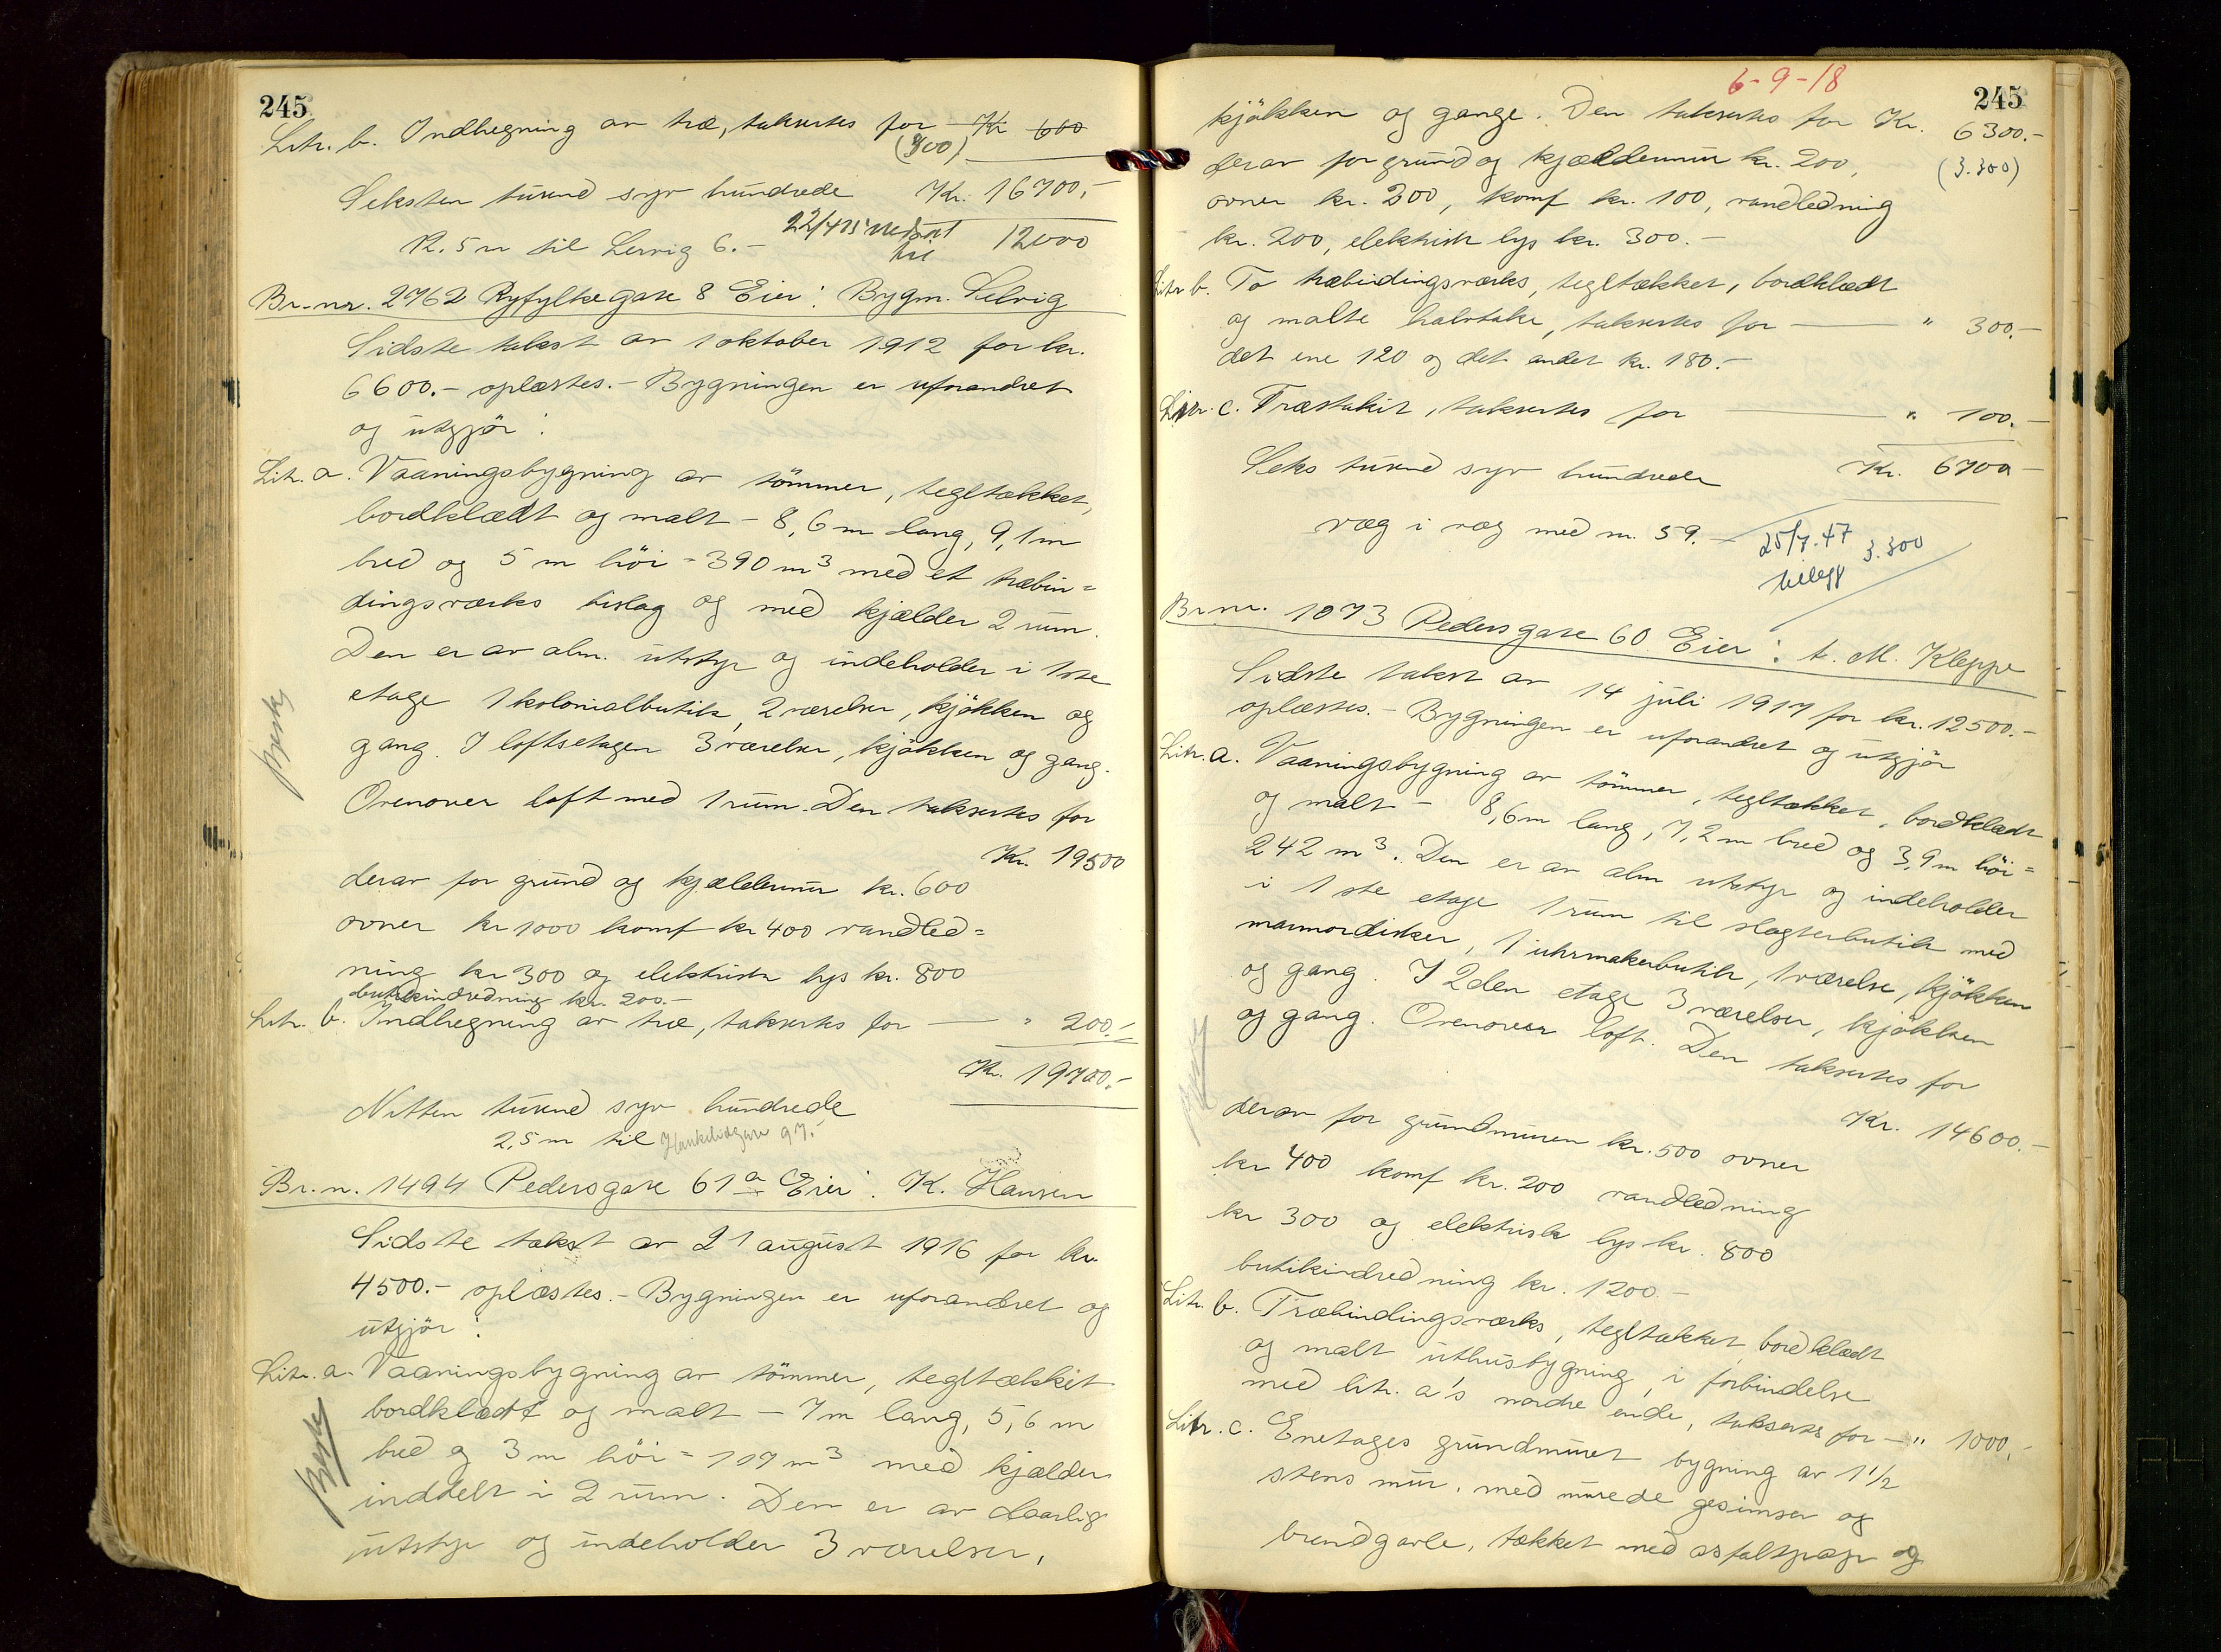 245
Litr. b. Indhegning av træ, taksertes for Kr 600
(700)
Seksten tusend syv hundrede Kr. 16700,-
22/4 25 nedsat til 12000
12.5 m til Lervig 6.-
Br.-nr. 2762 Ryfylkegate 8 Eier: Bygm. Selvig
Sidste takst av 1 oktober 1912 for kr.
6600.- oplæstes.- Bygningen er uforandret
og utgjör:
Litr. a. Vaaningsbygning av tömmer, tegltækket,
bordklædt og malt - 8,6 m lang, 9,1 m
bred og 5 m höi = 390 m3 med et træbin=
dingsverks bislag og med kjælder 2 rum.
Den er av alm. utstyr og indeholder i 1ste
etage 1 kolonialbutik, 2 værelser, kjökken og
gang. I loftsetagen 3 værelser, kjökken og gang.
Ovenover loft med 1 rum. Den taksertes for
Kr. 19500
derav for grund og kjældermur kr. 600
ovner kr 1000 komf kr 400 vandled=
ning kr 300 og elektrisk lys kr. 800
butikindredning kr. 200.-
Litr. b. Indhegning av træ, taksertes for — " 200.-
Kr. 19700.-
Nitten tusend syv hundrede
2,5 m til Haukeligate 97.-
Br. n. 1494 Pedersgate 61a Eier: K. Hansen
Sidste takst av 21 august 1916 for kr.
4500.- oplæstes.- Bygningen er uforandret og
utgjör:
Litr. a. Vaaningsbygning av tömmer, tegltækket
bordklædt og malt - 7 m lang, 5,6 m
bred og 3 m höi = 117 m3 med kjælder
inddelt i 2 rum. Den er av daarlig
utstyr og indeholder 3 værelser,
6-9-18
245
kjökken og gange. Den taksertes for Kr. 6300.-
derav for grund og kjældermur kr. 200, (3.300)
ovner kr. 200, komf kr. 100, vandledning
kr. 200, elektrisk lys kr. 300.-
Litr b. To træbindingsværks, tegltækket, bordklædt
og malte halvtake, taksertes for — " 300.-
det ene 120 og det andet kr. 180.-
Litr. c. Træstakit, taksertes for — " 100.-
Seks tusend syv hundrede Kr. 6700-
væg i væg med nr. 59.-
25/7.47 3.300
tillegg
Br.nr. 1073 Pedersgate 60 Eier: t. M. Kleppe
Sidste takst av 14 juli 1917 for kr. 12500.-
oplæstes.- Bygningen er uforandret og utgjör
Litr. a. Vaaningsbygning av tömmer, tegltækket, bordklædt
og malt - 8,6 m lang, 7,2 m bred og 3,9 m höi =
242 m3. Den er av alm utstyr og indeholder
i 1ste etage 1 rum til slagterbutik med
marmordisker, 1 uhrmakerbutik, 1 værelse, kjökken
og gang. I 2den etage 3 værelser, kjökken
og gang. Ovenover loft. Den taksertes for
Kr. 14600.-
derav for grundmuren kr. 500 ovner
kr 400 komf kr. 200 vandledning
kr 300 og elektrisk lys kr. 800
butikindredning kr. 1200.-
Litr. b. Træbindingsværks, tegltækket, bordklædt
og malt uthusbygning, i forbindelse
med litr. a's nordre ende, taksertes for — " 1000,-
Litr. c. Enetages grundmuret bygning av 1 1/2
stens mur, med murede gesimser og
brandgavle, tækket med asfaltpap og